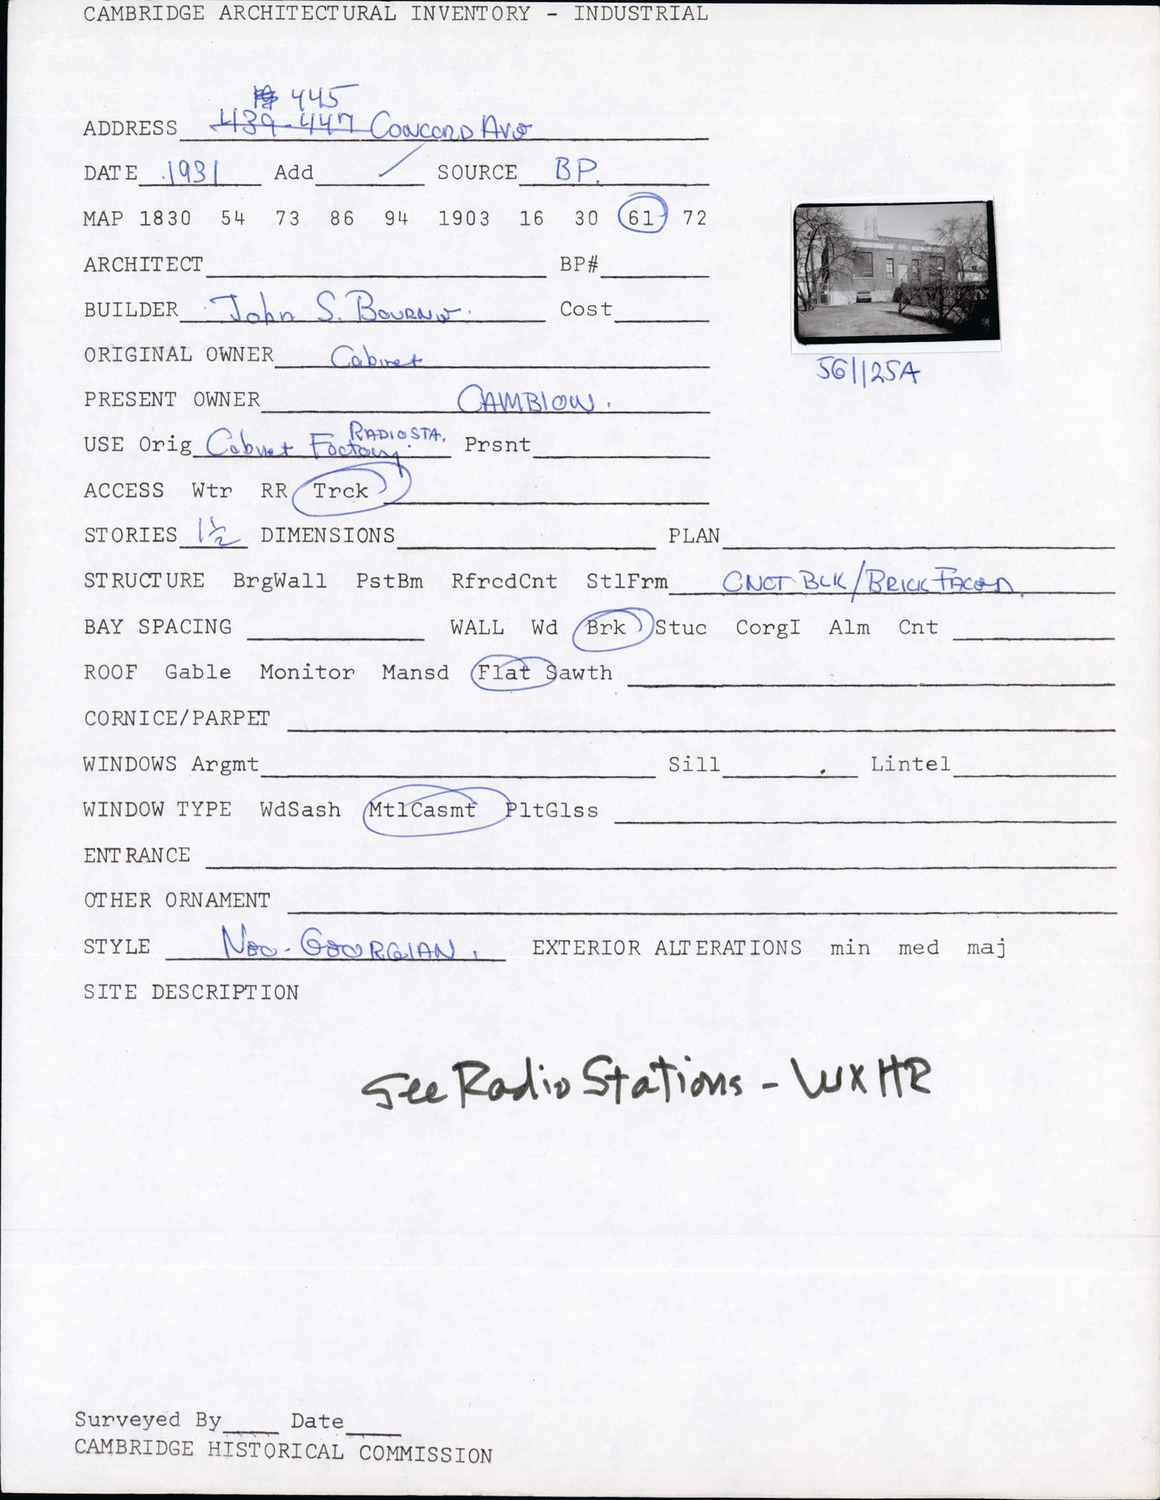 CAMBRIDGE ARCHITECTURAL INVENTORY - INDUSTRIAL
445
ADDRESS 439-447 Concord Ave
DATE 1931 Add SOURCE BP.
MAP 1830 54 73 86 94 1903 16 30 61 72
ARCHITECT BP#
BUILDER John S. Bourne. Cost
ORIGINAL OWNER Cabinet
PRESENT OWNER CAMBION.
RADIO STA.
USE Orig Cabinet Factory. Prsnt
ACCESS Wtr RR Trck
STORIES 1½ DIMENSIONS PLAN
STRUCTURE BrgWall PstBm RfrcdCnt StlFrm CNCT BLK/BRICK FACED.
BAY SPACING WALL Wd Brk Stuc CorgI Alm Cnt
ROOF Gable Monitor Mansd Flat Sawth
CORNICE/PARPET
WINDOWS Argmt Sill Lintel
WINDOW TYPE WdSash MtlCasmt PltGlss
ENTRANCE
OTHER ORNAMENT
STYLE Neo-Georgian. EXTERIOR ALTERATIONS min med maj
SITE DESCRIPTION
561/25A
See Radio Stations - WXHR
Surveyed By Date
CAMBRIDGE HISTORICAL COMMISSION